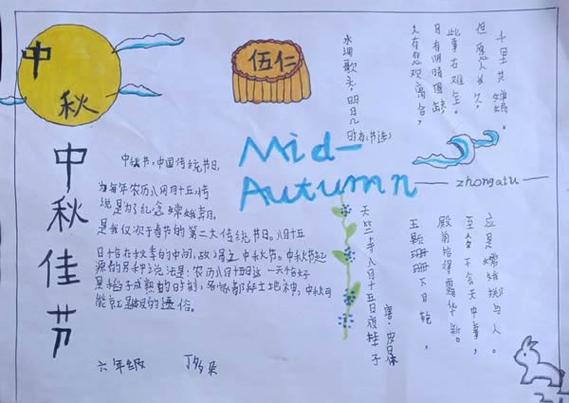 中
秋
伍仁
中秋佳节
Mid-
Autumn
zhongqiu
中秋节,中国传统节日,
为每年农历八月十五,传
说是为了纪念嫦娥奔月.
是我仅次于春节的第二大传统节日。八月十五
日恰在秋季的中间,故
中秋节。中秋节起
源的另种了说法是:农历八月十五日这一天恰好
是稻子成熟的时刻,
都拜土地神,中秋可
能就是
的遗俗。
六年级
水调歌头,明月几
时有(节选)
人有悲欢离合,
月有阴晴圆缺
此事古难全。
但愿人长久,
千里共婵娟。
天竺寺八月十五日夜桂子
唐·皮日休
玉颗珊珊下月轮,
殿前拾得露华新。
至今不会天中事,
应是嫦娥掷与人。